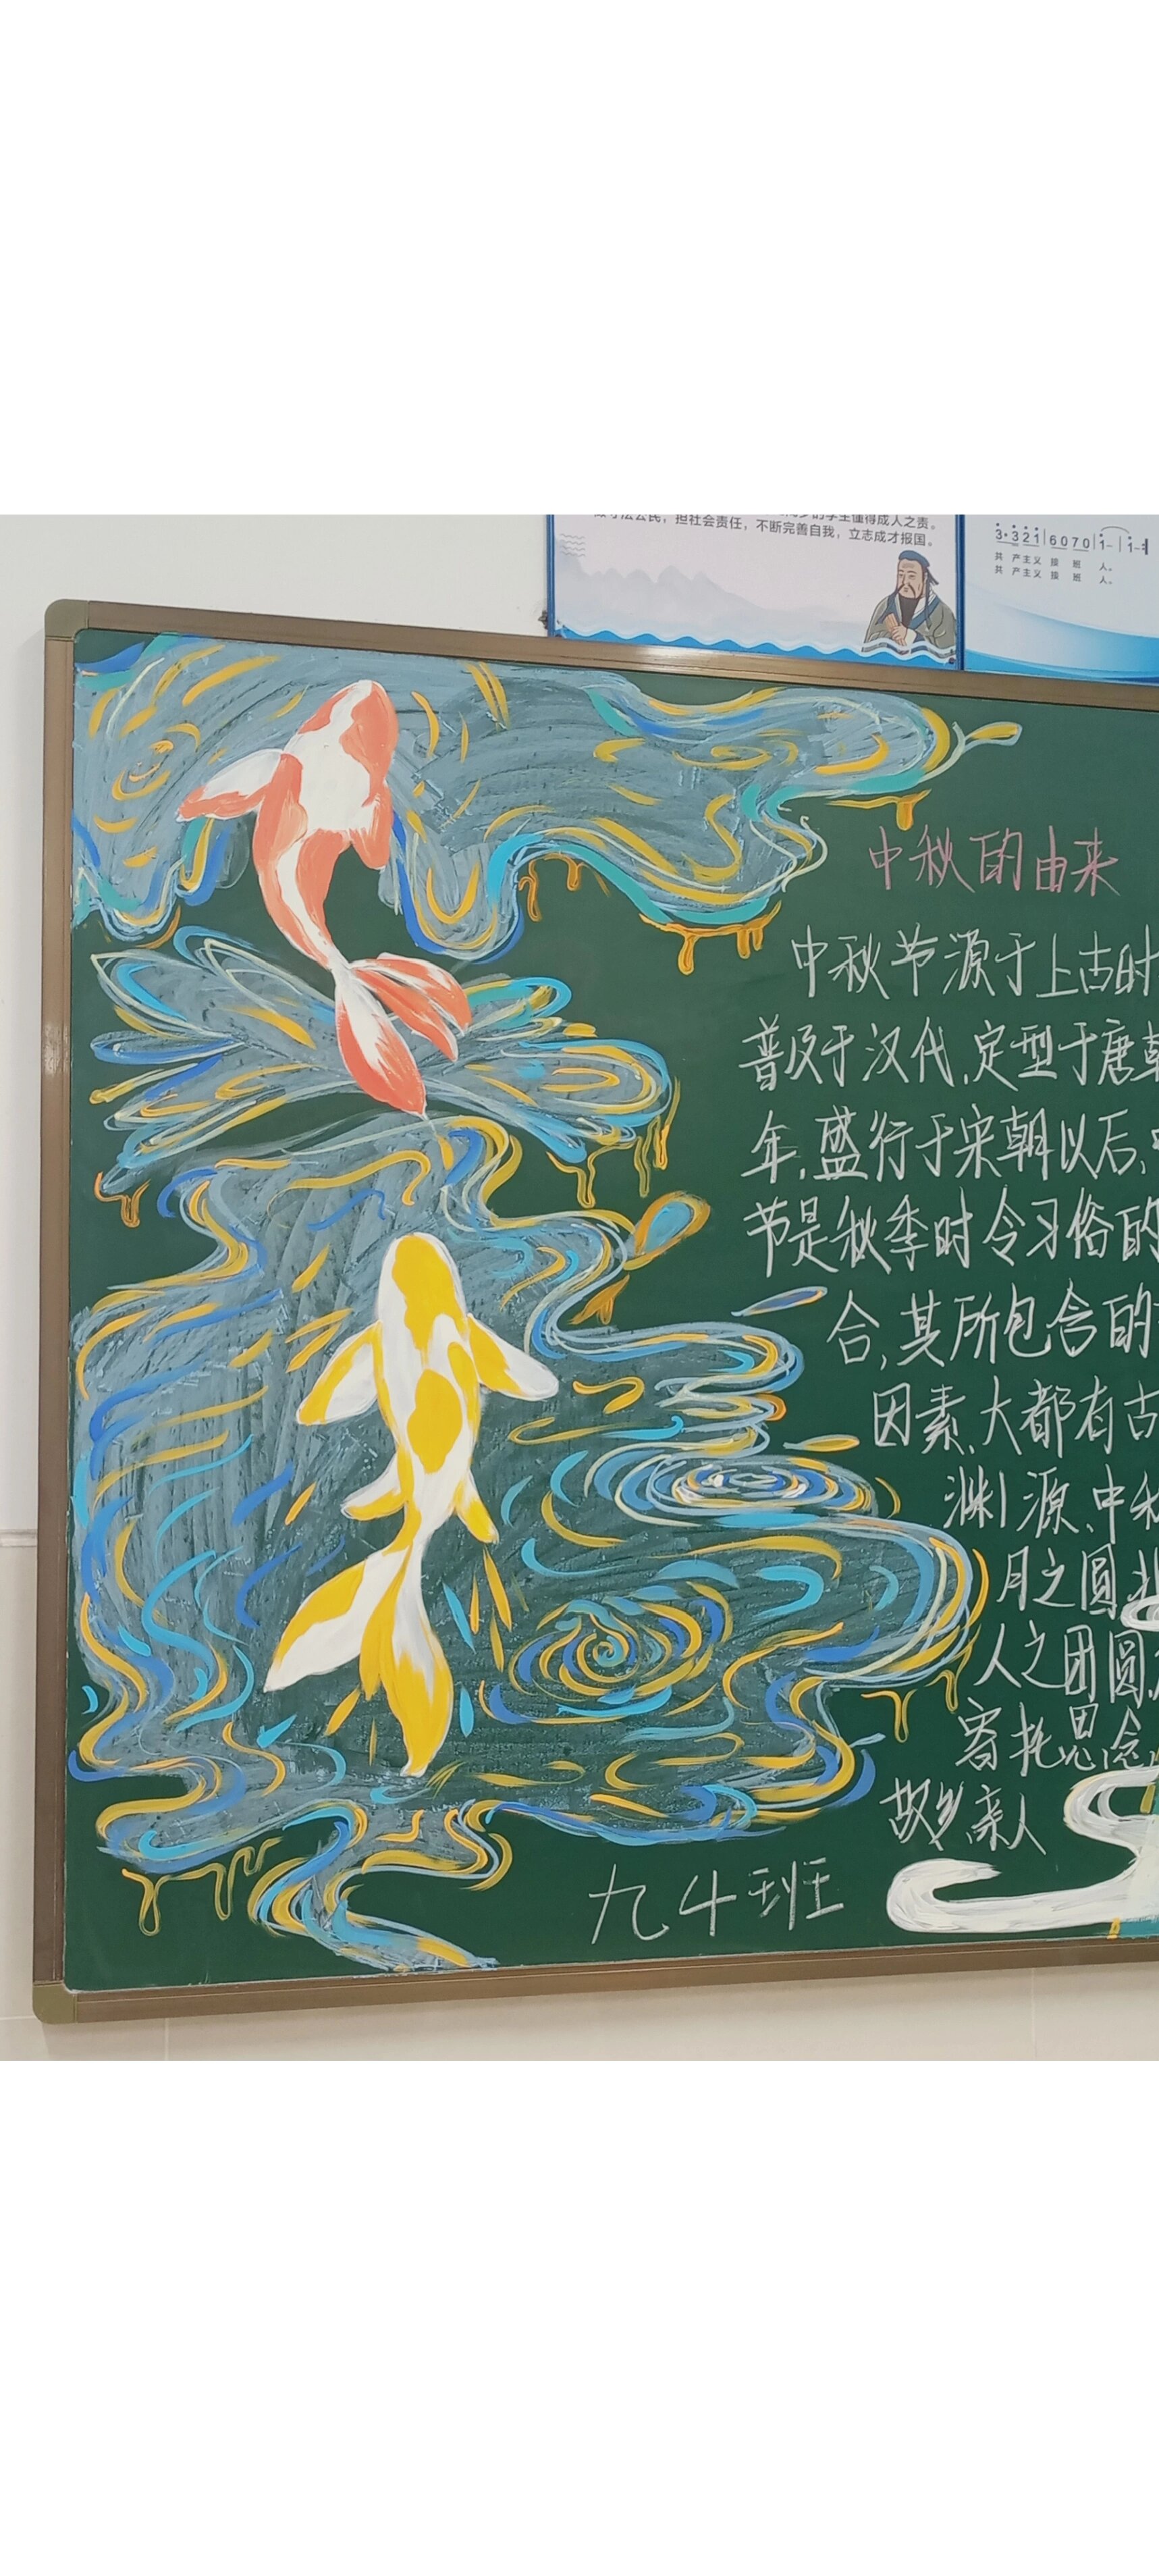 学生懂得成人之责。
做守法公民，担社会责任，不断完善自我，立志成才报国。
3·321|6070|1-|1-:‖
共产主义接班人。
共产主义接班人。
中秋的由来
中秋节源于上古时
普及于汉代,定型于唐朝
年,盛行于宋朝以后,
节是秋季时令习俗的
合,其所包含的
因素,大都有古
渊源、中秋
月之圆
人之团圆
寄托思念
故乡,亲人
九4班